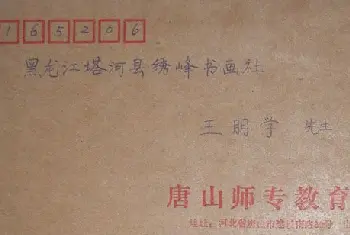 165200
黑龙江塔河县绣峰书画社
王明学 先生
唐山师专教育
地址：河北省唐山市